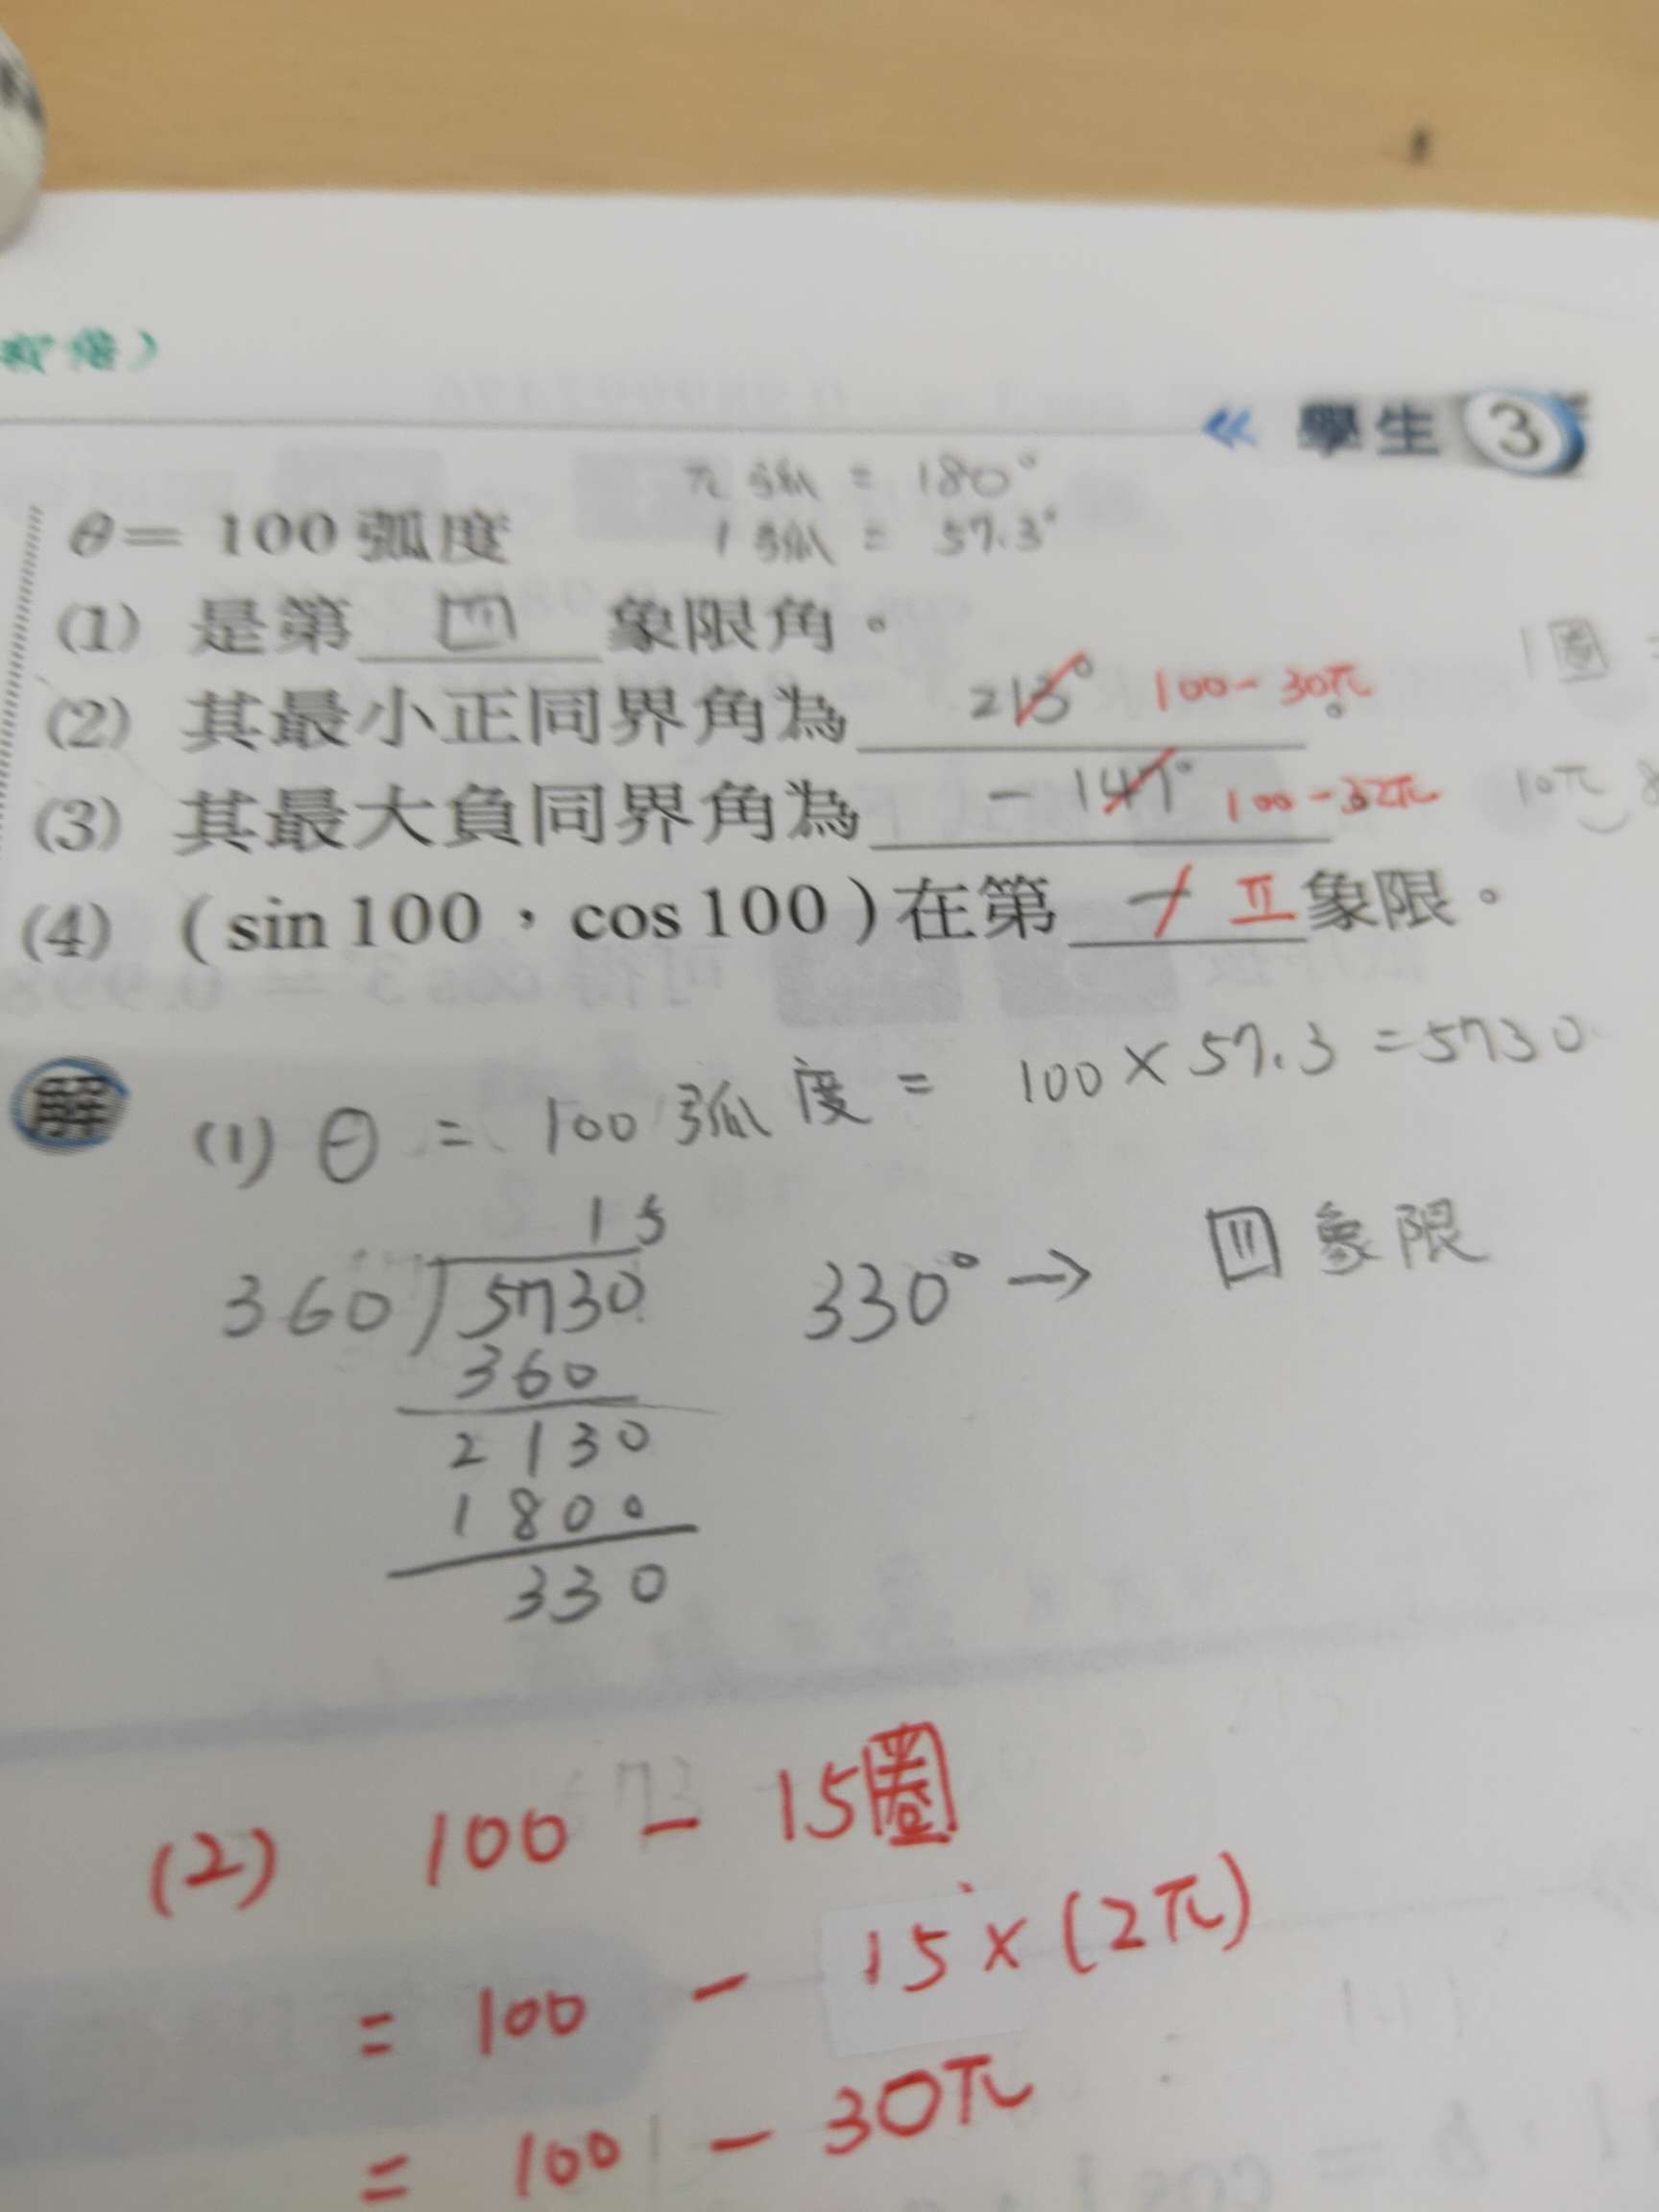 學生 3
π 弧 = 180°
θ= 100 弧度 1 弧 = 57.3°
(1) 是第 四 象限角。
1圈
(2) 其最小正同界角為 213° 100-30π。
(3) 其最大負同界角為 -147° 100-32π
10π
(4) (sin 100,cos 100)在第 一 II 象限。
解 (1) θ = 100 弧度 = 100 × 57.3 = 5730
15
360 5730 330° → 四 象限
360
2130
1800
330
(2) 100 - 15圈
= 100 - 15×(2π)
= 100 - 30π